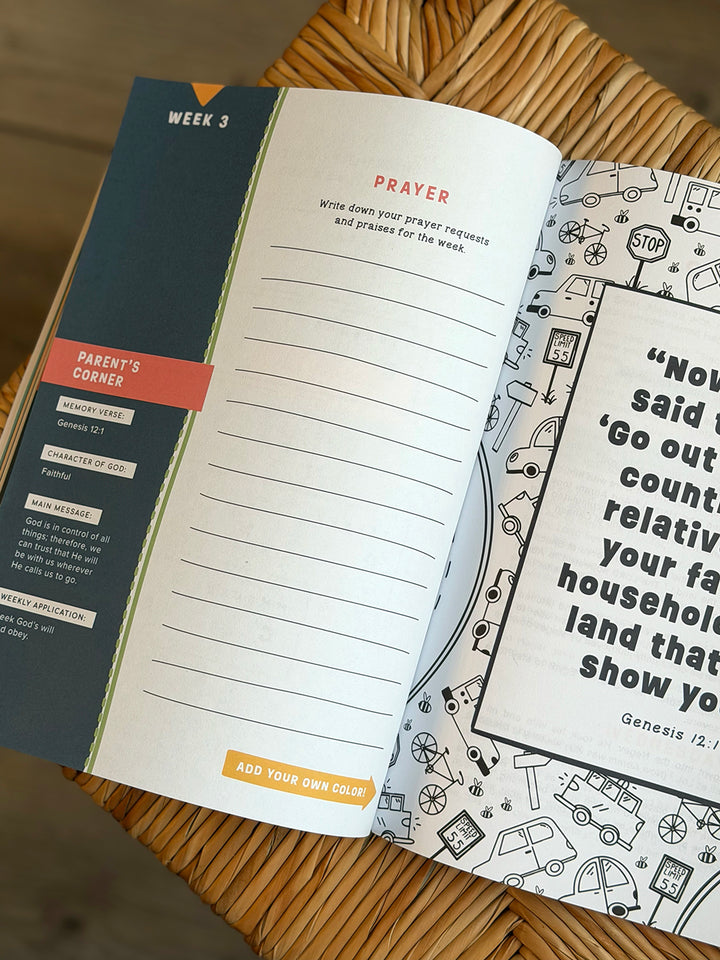 WEEK 3
PARENT'S
CORNER
MEMORY VERSE:
Genesis 12:1
CHARACTER OF GOD:
Faithful
MAIN MESSAGE:
God is in control of all
things; therefore, we
can trust that He will
be with us wherever
He calls us to go.
WEEKLY APPLICATION:
eek God's will
d obey.
PRAYER
Write down your prayer requests
and praises for the week.
ADD YOUR OWN COLOR!
STOP
SPEED
LIMIT
55
"Now
said t
'Go out
count
relativ
your fa
household
land that
show yo
Genesis 12:1
SPEED
LIMIT
55
SPEED
LIMIT
55